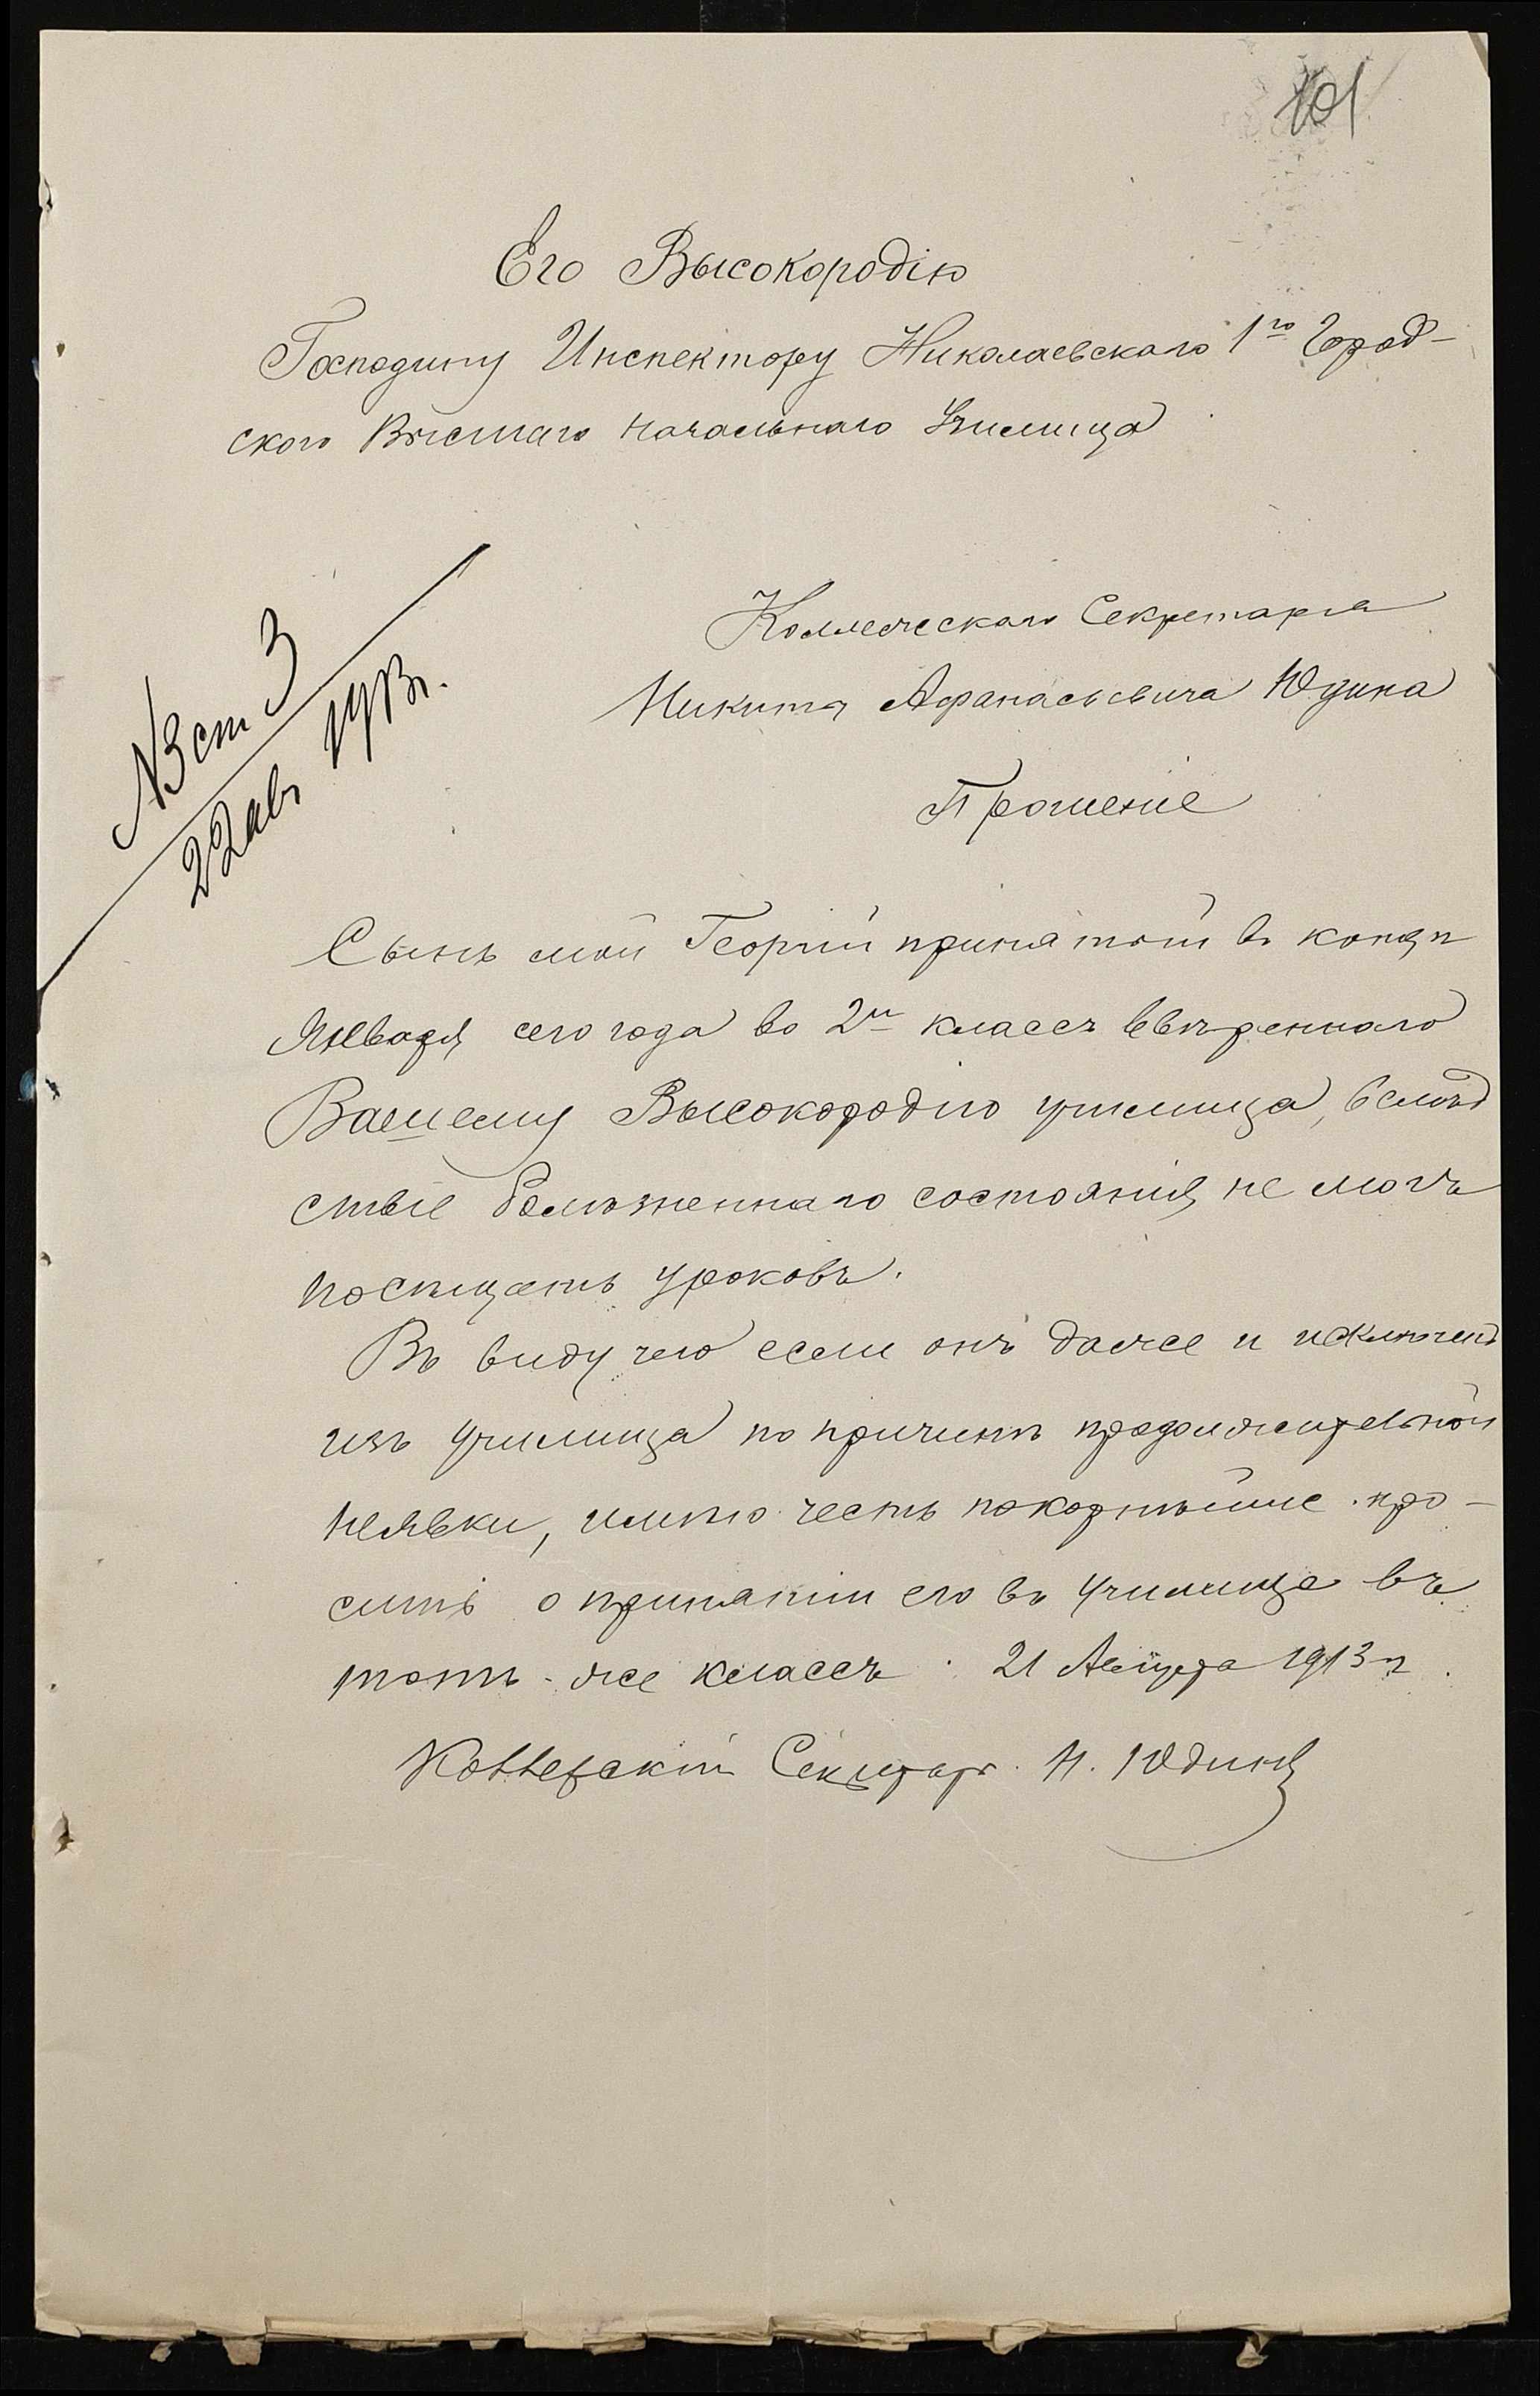 101
Его Высокородію
Господину Инспектору Николаевскаго 1го Город-
ского Высшаго Начальнаго Училища
№ 3 ст 3
22 авг 1913 г.
Коллежскаго Секретаря
Никиты Афанасьевича Юдина
Прошеніе
Сынъ мой Георгій принятый въ концѣ
Января сего года во 2й классъ ввѣреннаго
Вашему Высокородію училища, вслѣд
ствіе болѣзненнаго состоянія, не могъ
посѣщать уроковъ.
Въ виду чего если онъ даже и исключенъ
изъ училища по причинѣ продолжительной
неявки, имѣю честь покорнѣйше про-
сить о принятіи его въ училище въ
тотъ-же классъ. 21 Августа 1913 г.
Коллежскій Секретарь Н. Юдинъ